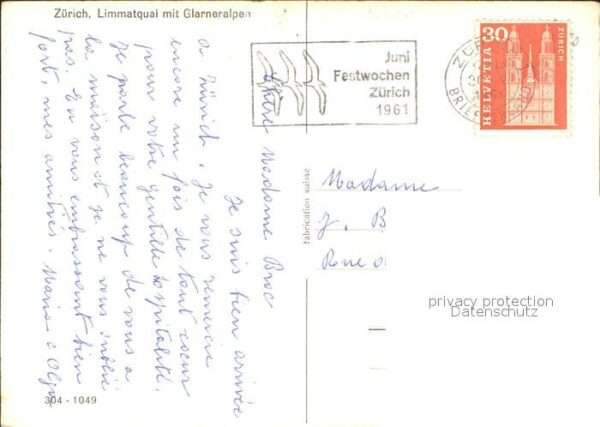 Zürich, Limmatquai mit Glarneralpen
Chère Madame Broc
Je suis bien arrivée
à Zürich. Je vous remercie
encore un fois de tout coeur
pour votre gentille hospitalité.
Je parle beaucoup de vous a
la maison et je ne vous oublie
pas. En vous embrassant bien
fort, mes amitiés. Maria e Olga
304 - 1049
fabrication suisse
Juni
Festwochen
Zürich
1961
30
HELVETIA
ZÜRICH
Madame
J. B
Rue
privacy protection
Datenschutz